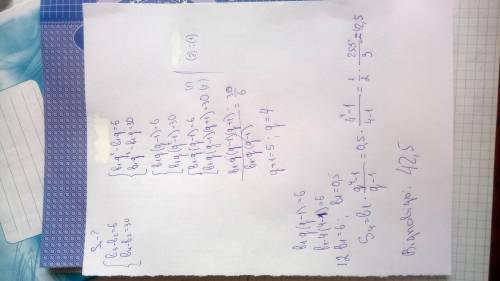 S₄-?
{b₃-b₂=6
b₄-b₂=30
{b₁q²-b₁q=6
b₁q³-b₁q=30
{b₁q(q-1)=6
b₁q(q²-1)=30
{b₁q(q-1)=6 (1)
b₁q(q-1)(q+1)=30 (2) | (2):(1)
b₁q(q-1)(q+1)/b₁q(q-1)=30/6
q+1=5; q=4
b₁q(q-1)=6
b₁·4(4-1)=6
12b₁=6; b₁=0,5
S₄=b₁·q⁴-1/q-1=0,5·4⁴-1/4-1=1/2·255/3=42,5
Відповідь: 42,5